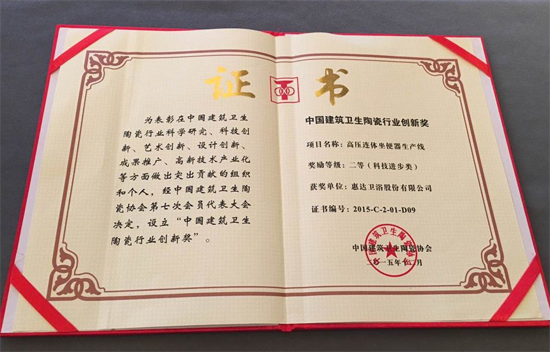 证书
为表彰在中国建筑卫生
陶瓷行业科学研究、科技创
新、艺术创新、设计创新、
成果推广、高新技术产业化
等方面做出突出贡献的组织
和个人，经中国建筑卫生陶
瓷协会第七次会员代表大会
决定，设立“中国建筑卫生
陶瓷行业创新奖”。
中国建筑卫生陶瓷行业创新奖
项目名称：高压连体坐便器生产线
奖励等级：二等（科技进步类）
获奖单位：惠达卫浴股份有限公司
证书编号：2015-C-2-01-D09
中国建筑卫生陶瓷协会
二〇一五年十二月